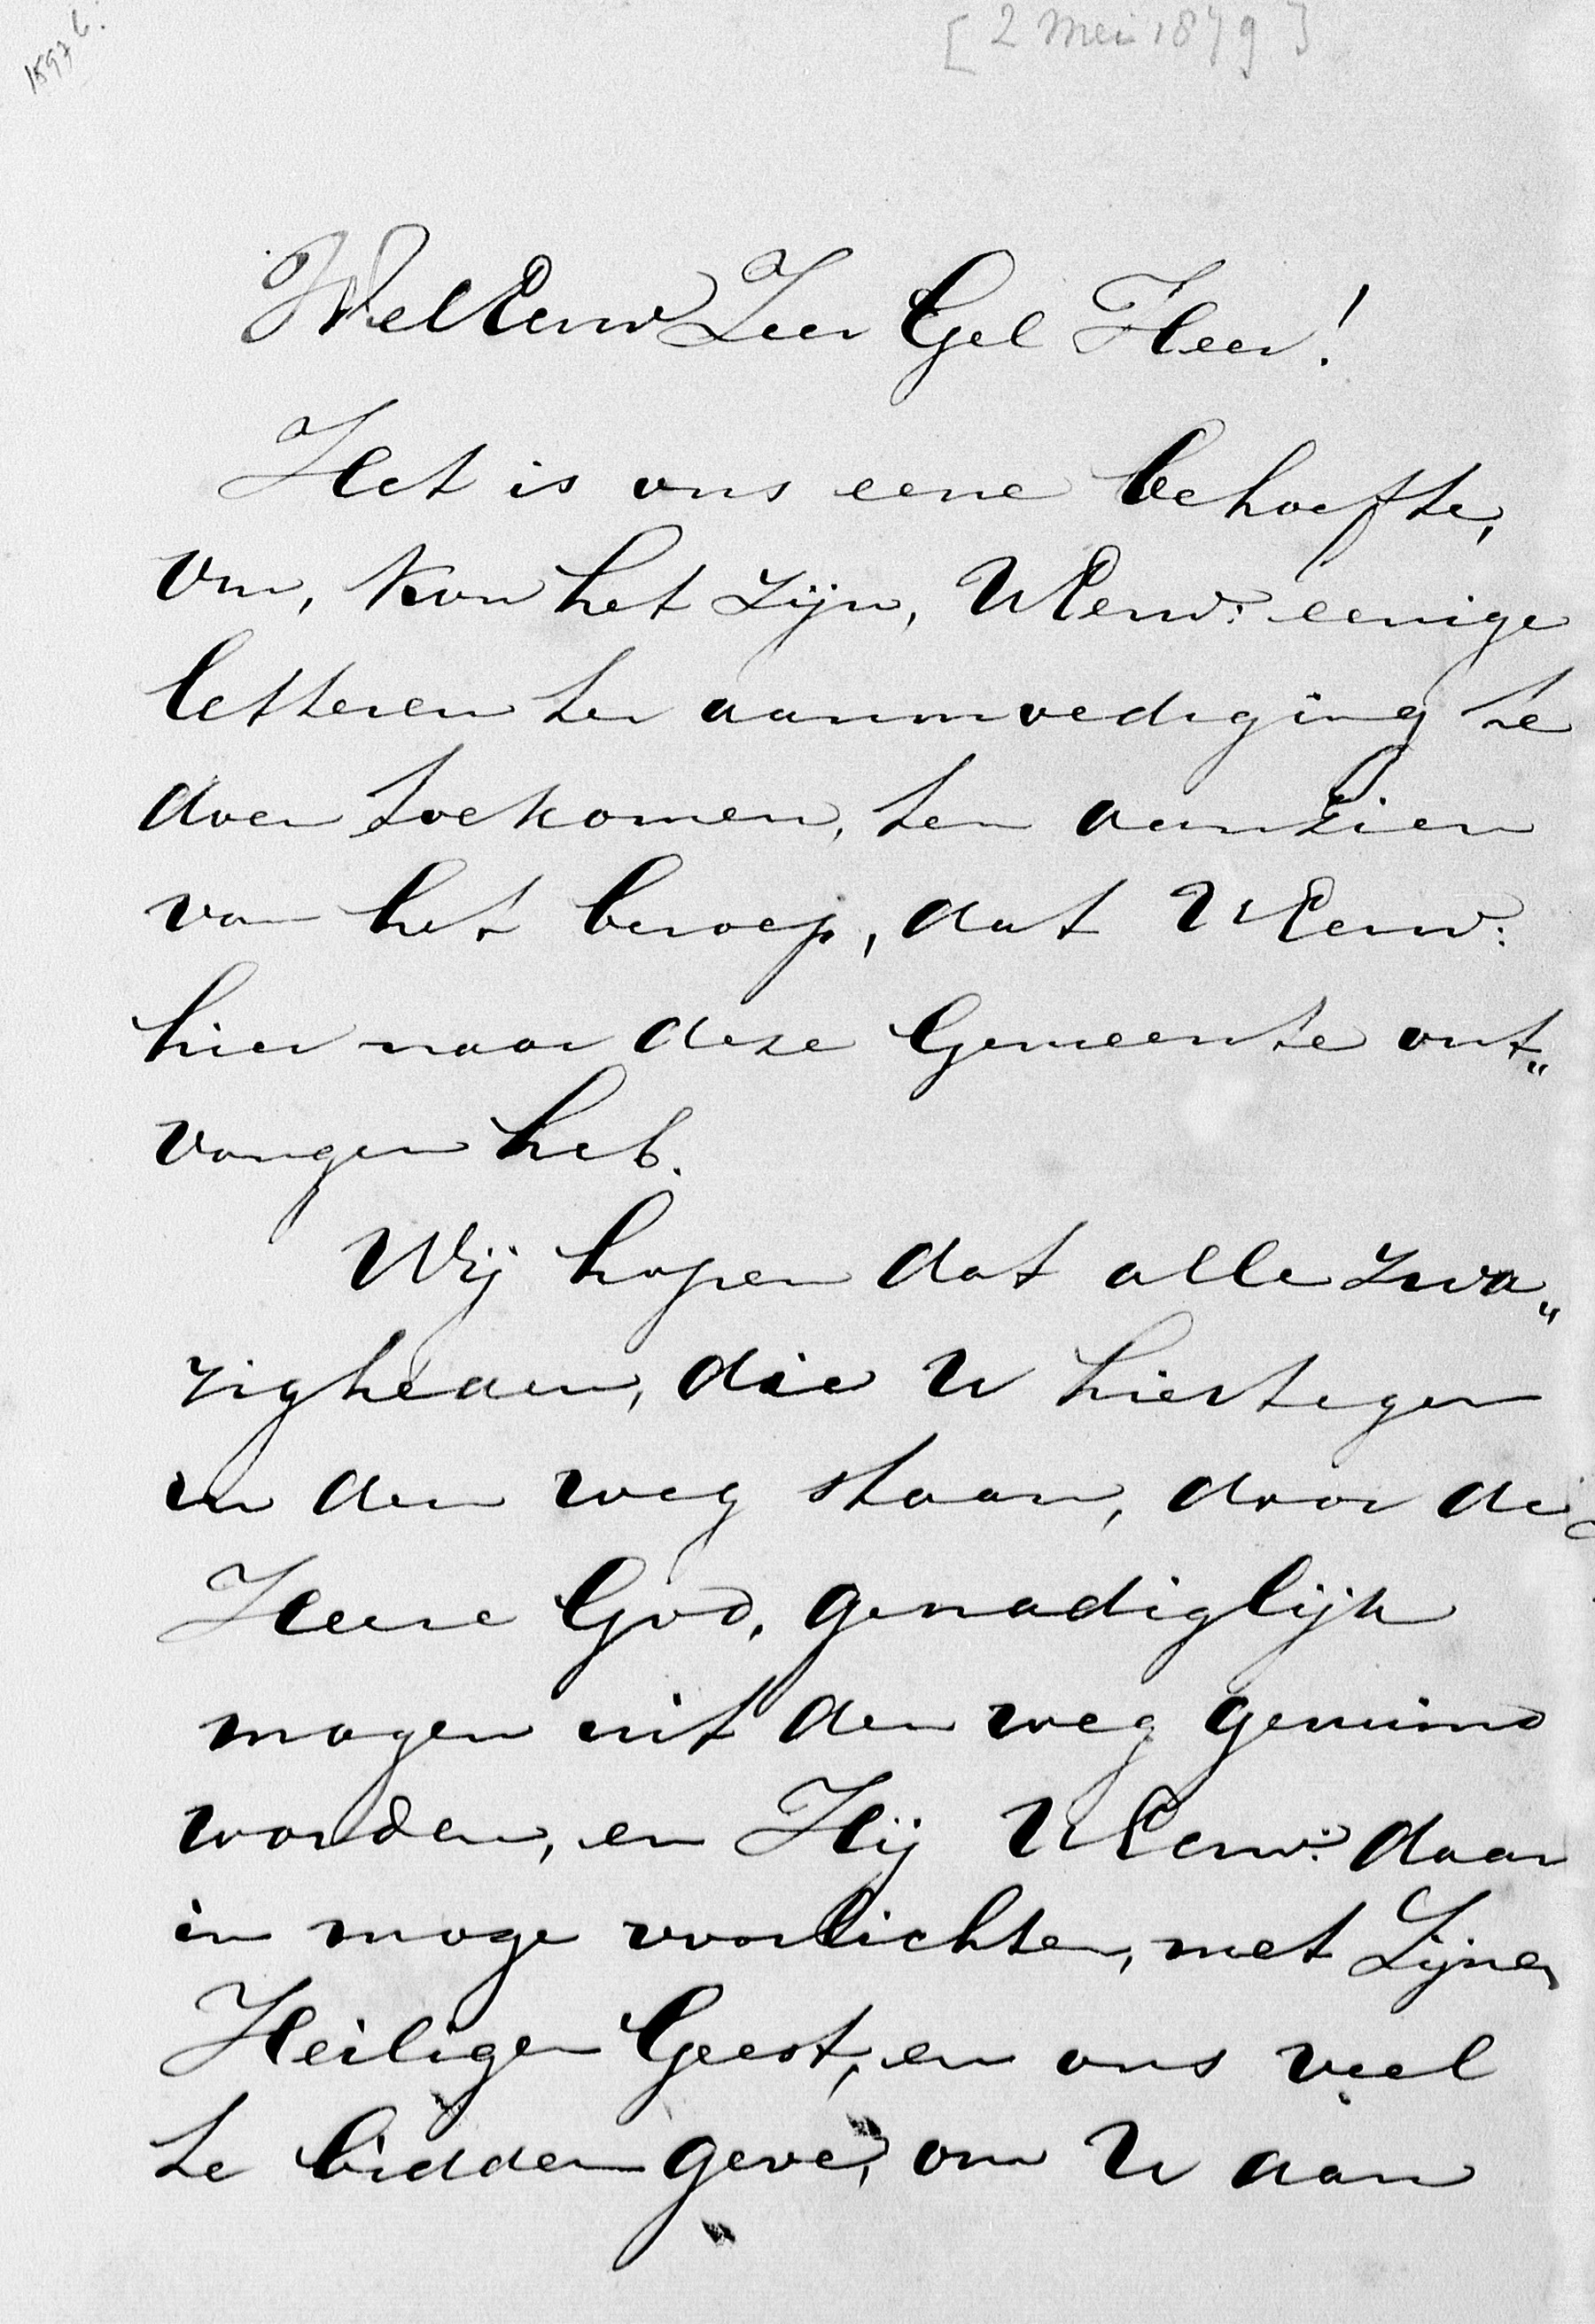 1897 b.
[ 2 Mei 1879 ]
WelEerw Zeer Gel Heer!
Het is ons eene behoefte,
om, kon het zijn, UEerw: eenige
letteren ter aanmoediging te
doen toekomen, ten aanzien
van het beroep, dat UEerw:
hier naar deze Gemeente ont„
vangen heb.
Wij hopen dat alle zwa„
righeden, die U hiertegen
in den weg staan, door de
Heere God, genadiglijk
mogen uit den weg geruimd
worden, en Hij UEerw: daar
in moge voorlichten, met Zijnen
Heiligen Geest, en ons veel
te bidden geve, om U aan